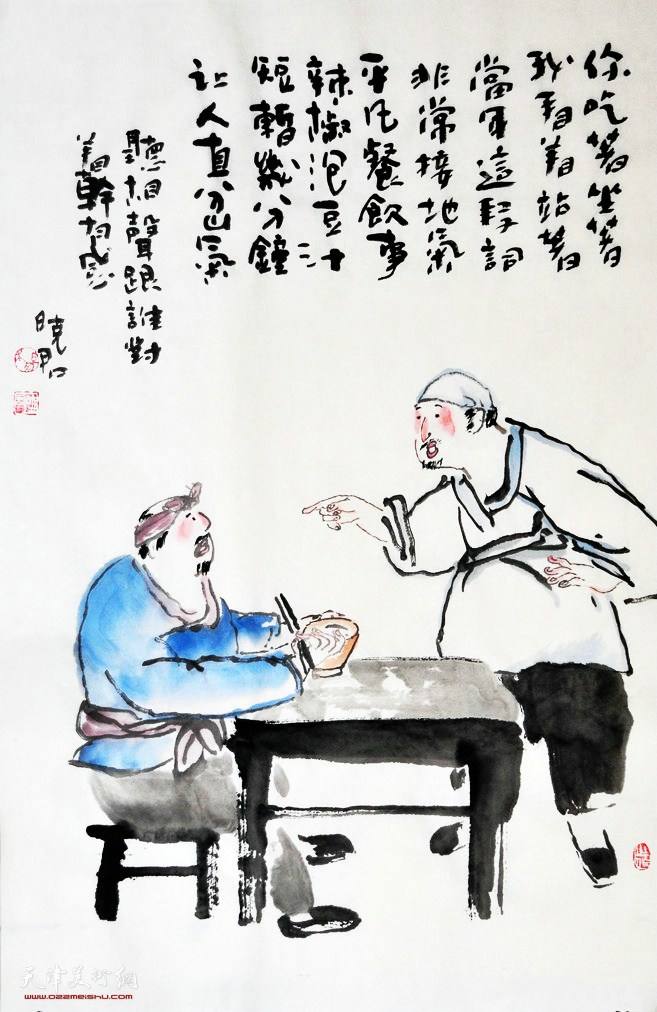 你吃着坐着
我看着站着
當年這段詞
非常接地氣
平凡餐飲事
辣椒泡豆汁
短暫幾分鐘
让人直岔氣
聽相聲跟誰對
着幹有感
曉明
天津美術網
www.022meishu.com